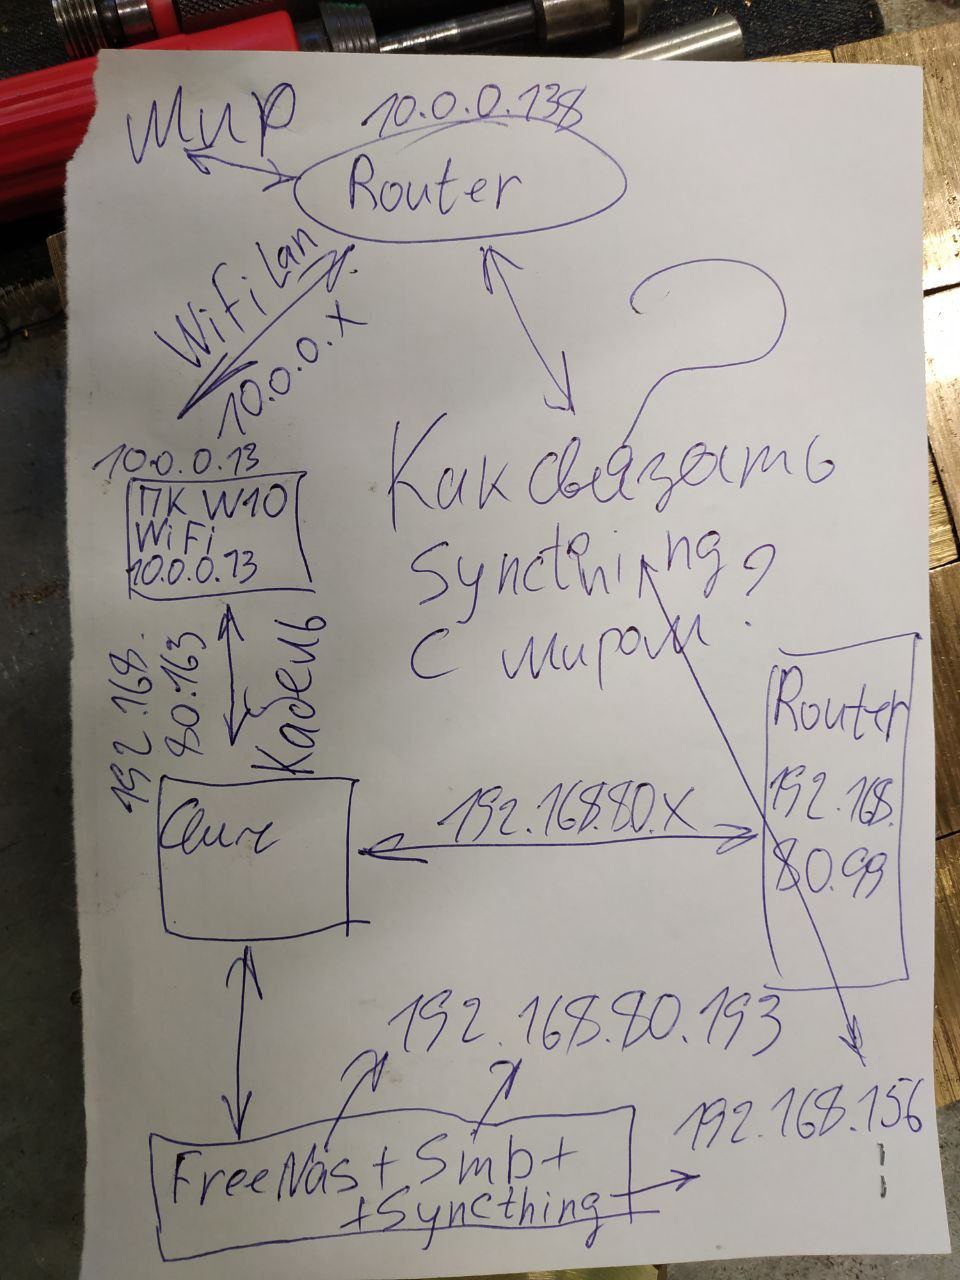 Мир
10.0.0.138
Router
WiFi Lan
10.0.0.x
10.0.0.13
ПК W10
WiFi
10.0.0.13
Как связать
Syncthing
с миром?
192.168.
80.163
Кабель
Router
192.168.
80.99
192.168.80.x
Свич
192.168.80.193
192.168.156
FreeNas + Smb +
+ Syncthing